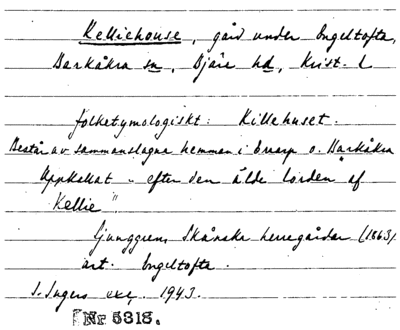 Kelliehouse, gård under Engeltofta,
Barkåkra sn, Bjäre hd, Krist. l
folketymologiskt: Killehuset.
Består av sammanslagna hemman i Errarp o. Barkåkra
Uppkallat "efter den älde lorden af
Kellie"
Ljunggrens Skånska herregårdar (1863)
art. Engeltofta.
S. Ingers exc. 1943.
Nr 5318.